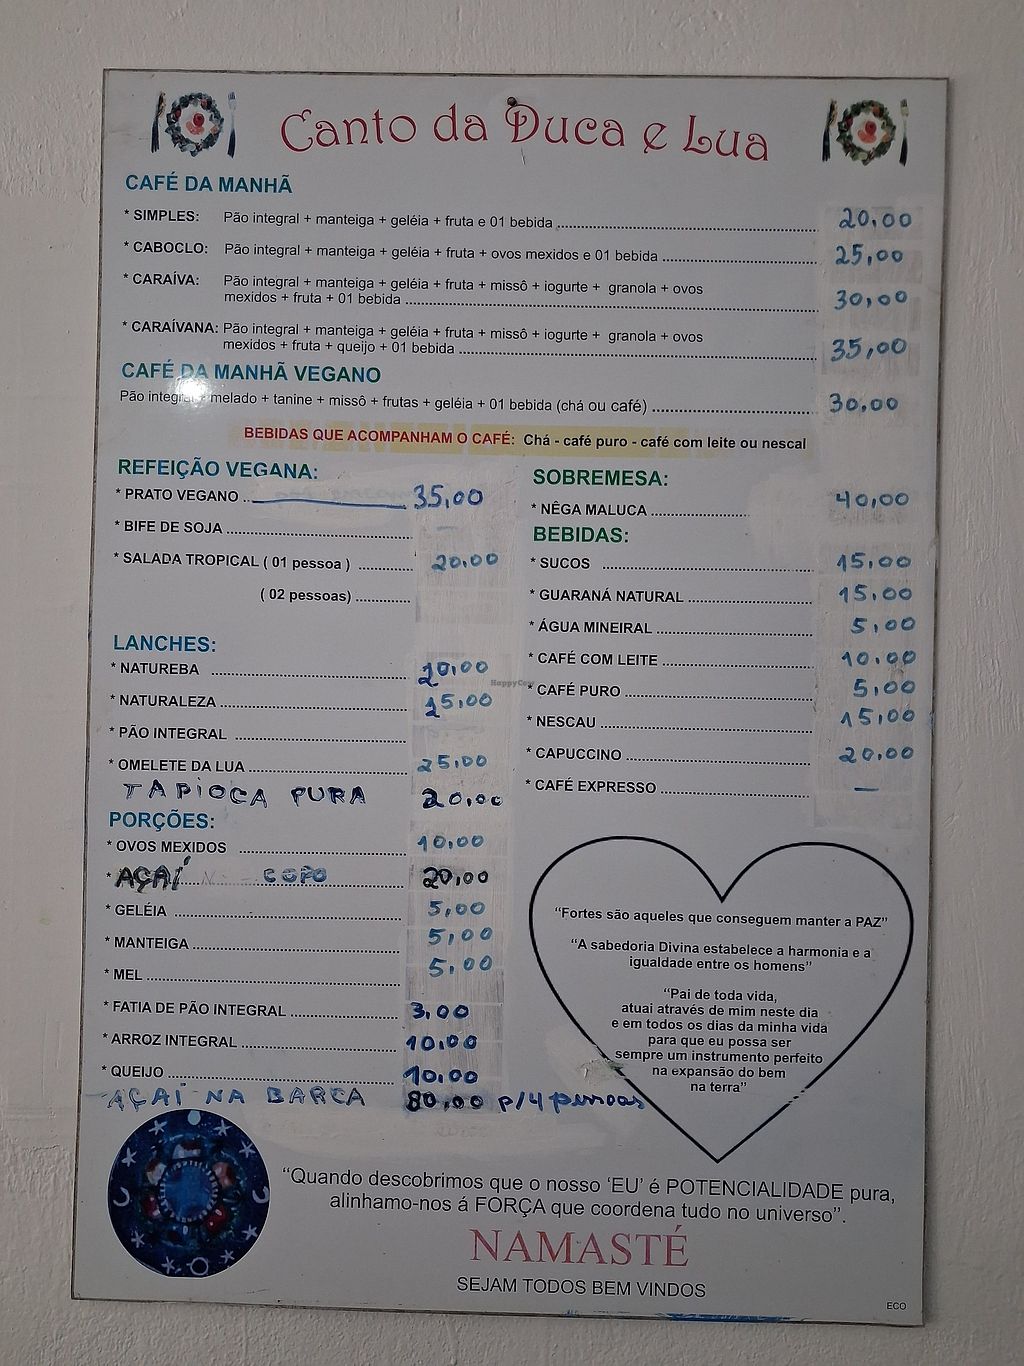 Canto da Duca e Lua
CAFÉ DA MANHÃ
* SIMPLES: Pão integral + manteiga + geléia + fruta e 01 bebida ........ 20,00
* CABOCLO: Pão integral + manteiga + geléia + fruta + ovos mexidos e 01 bebida ........ 25,00
* CARAÍVA: Pão integral + manteiga + geléia + fruta + missô + iogurte + granola + ovos
mexidos + fruta + 01 bebida ........ 30,00
* CARAÍVANA: Pão integral + manteiga + geléia + fruta + missô + iogurte + granola + ovos
mexidos + fruta + queijo + 01 bebida ........ 35,00
CAFÉ DA MANHÃ VEGANO
Pão integral + melado + tanine + missô + frutas + geléia + 01 bebida (chá ou café) ........ 30,00
BEBIDAS QUE ACOMPANHAM O CAFÉ: Chá - café puro - café com leite ou nescal
REFEIÇÃO VEGANA:
* PRATO VEGANO ........ 35,00
* BIFE DE SOJA ........
* SALADA TROPICAL ( 01 pessoa ) ........ 20,00
( 02 pessoas) ........
LANCHES:
* NATUREBA ........ 20,00
* NATURALEZA ........ 25,00
* PÃO INTEGRAL ........
* OMELETE DA LUA ........ 25,00
TAPIOCA PURA 20,00
PORÇÕES:
* OVOS MEXIDOS ........ 10,00
* AÇAÍ COPO 20,00
* GELÉIA ........ 5,00
* MANTEIGA ........ 5,00
* MEL ........ 5,00
* FATIA DE PÃO INTEGRAL ........ 3,00
* ARROZ INTEGRAL ........ 10,00
* QUEIJO ........ 10,00
AÇAÍ NA BARCA 80,00 p/4 pessoas
SOBREMESA:
* NÊGA MALUCA ........ 40,00
BEBIDAS:
* SUCOS ........ 15,00
* GUARANÁ NATURAL ........ 15,00
* ÁGUA MINEIRAL ........ 5,00
* CAFÉ COM LEITE ........ 10,00
* CAFÉ PURO ........ 5,00
* NESCAU ........ 15,00
* CAPUCCINO ........ 20,00
* CAFÉ EXPRESSO ........ —
"Fortes são aqueles que conseguem manter a PAZ"
"A sabedoria Divina estabelece a harmonia e a
igualdade entre os homens"
"Pai de toda vida,
atuai através de mim neste dia
e em todos os dias da minha vida
para que eu possa ser
sempre um instrumento perfeito
na expansão do bem
na terra"
"Quando descobrimos que o nosso 'EU' é POTENCIALIDADE pura,
alinhamo-nos á FORÇA que coordena tudo no universo".
NAMASTÉ
SEJAM TODOS BEM VINDOS
ECO
HappyCow